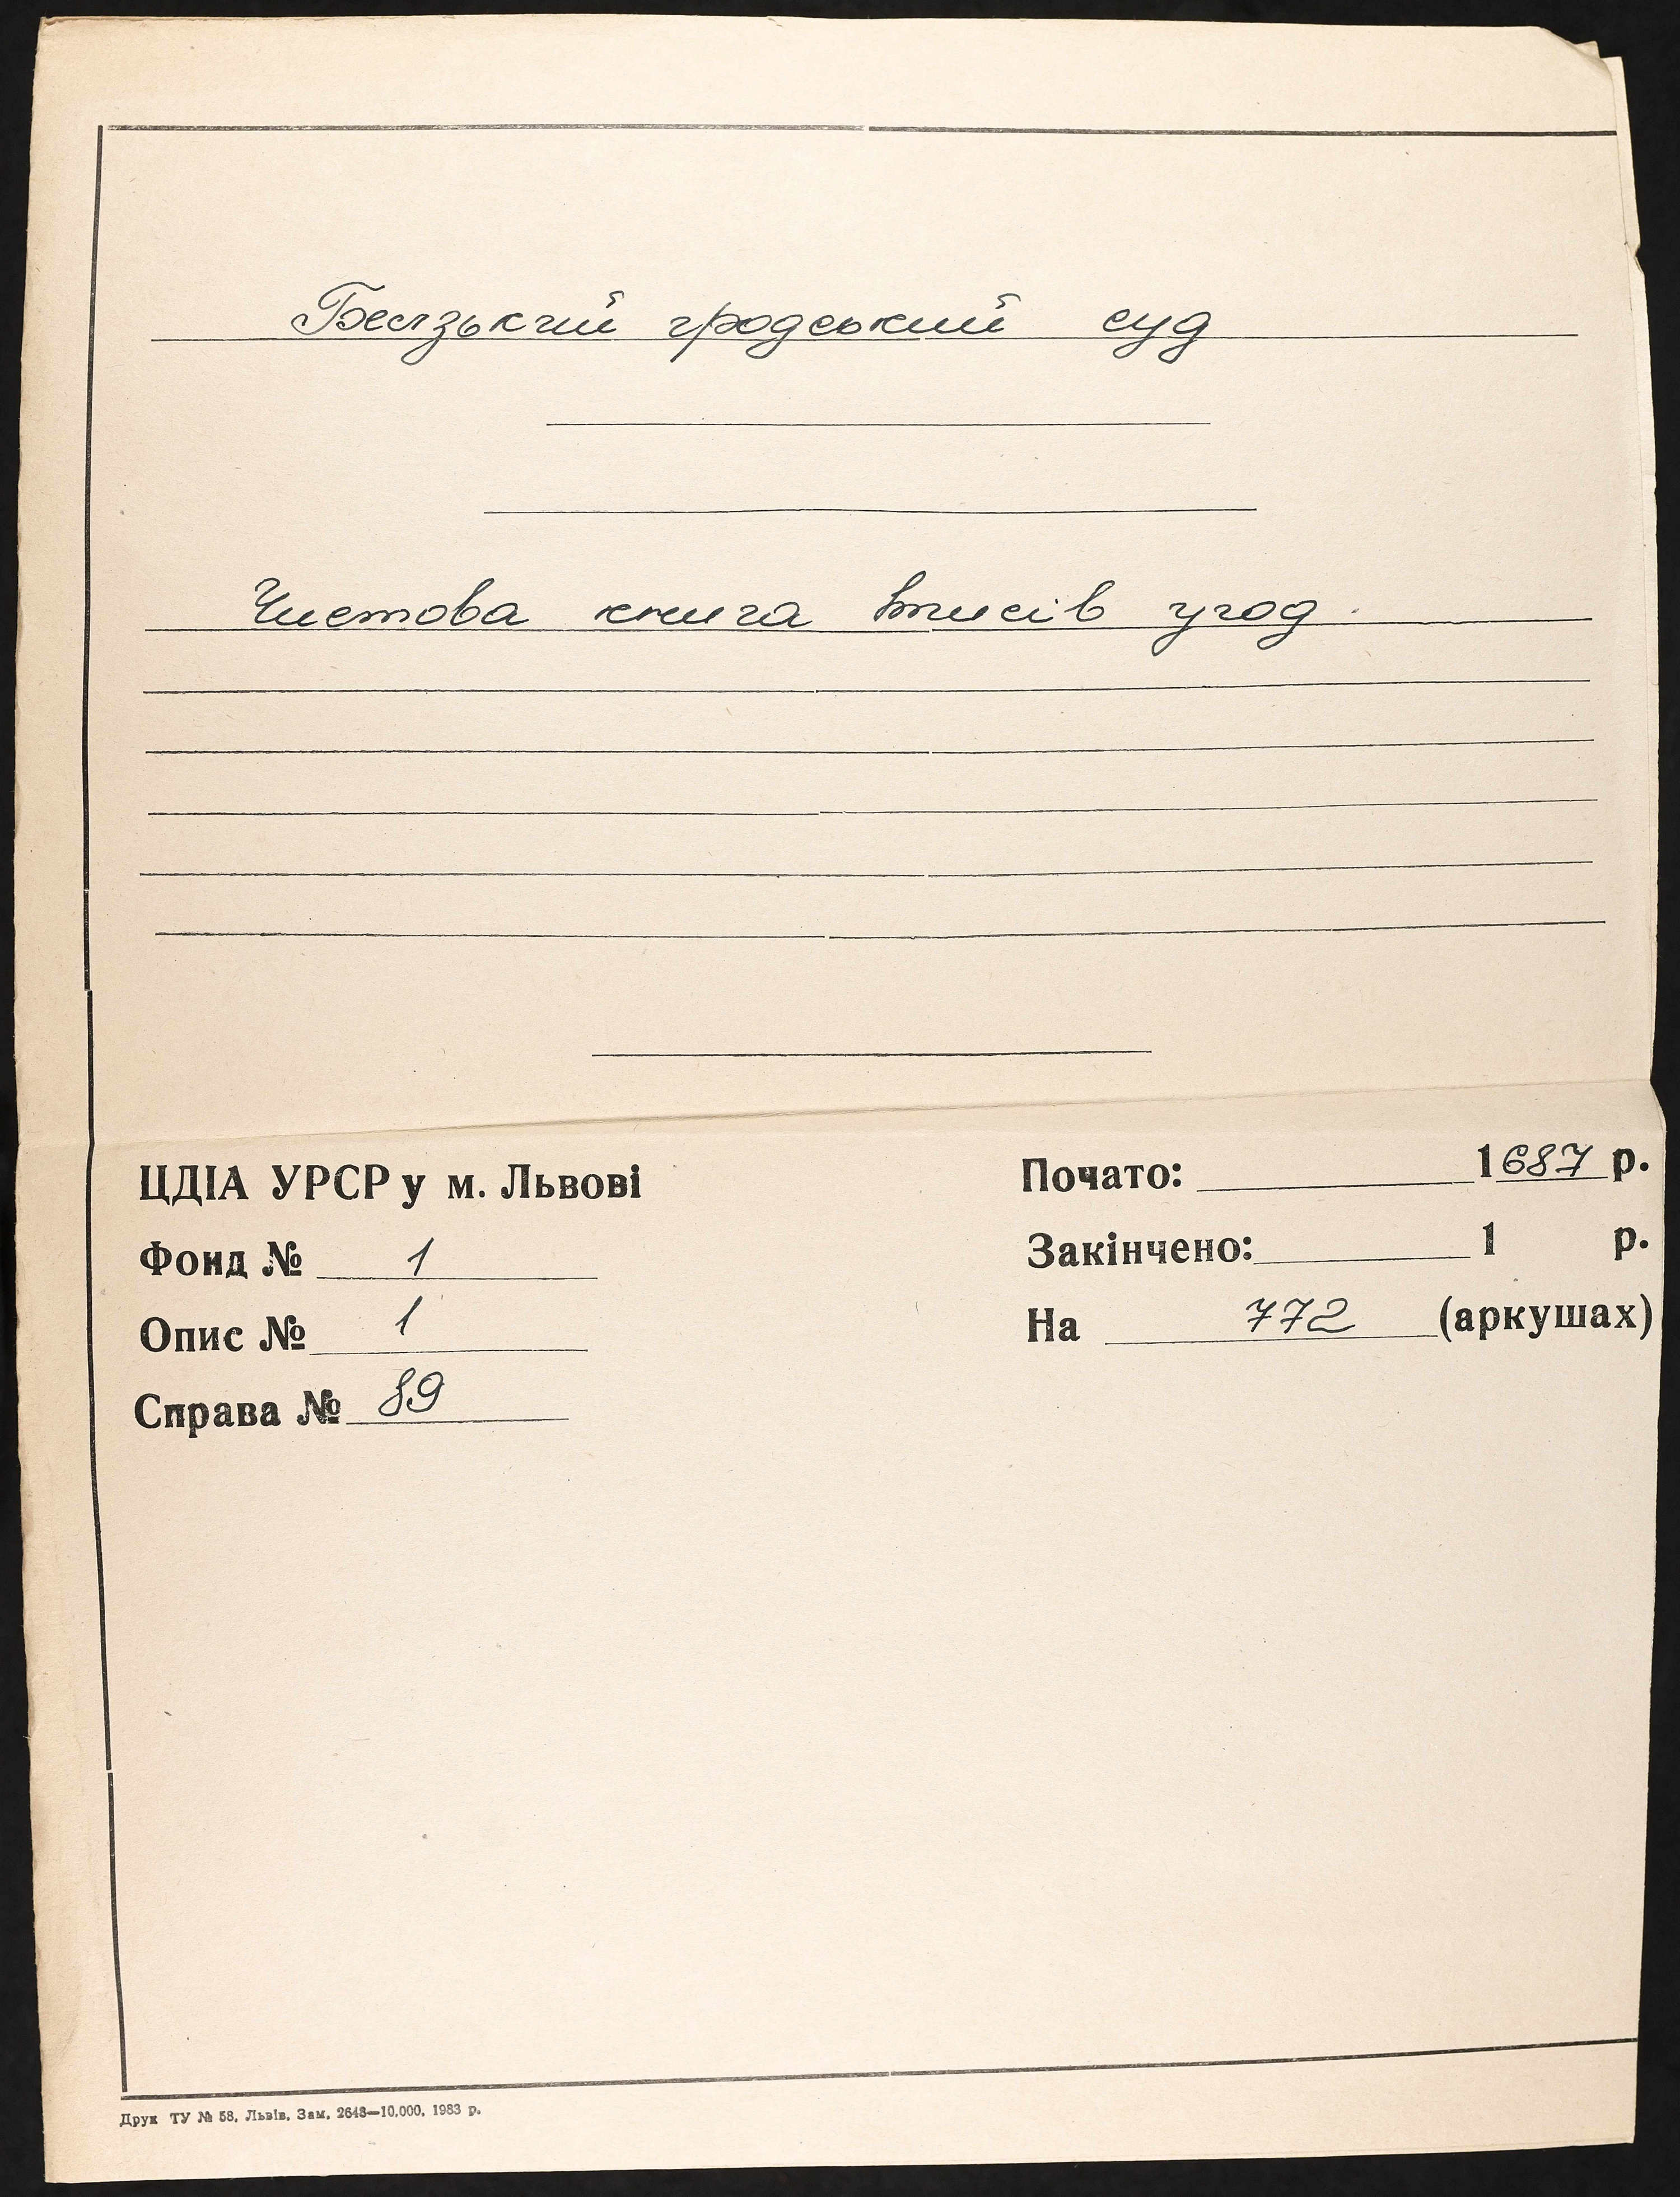 Белзький гродський суд
Чистова книга вписів угод.
ЦДІА УРСР у м. Львові
Фонд № 1
Опис № 1
Справа № 89
Почато: 1687 р.
Закінчено: 1 р.
На 772 (аркушах)
Друк ТУ № 58. Львів. Зам. 2648—10.000. 1983 р.